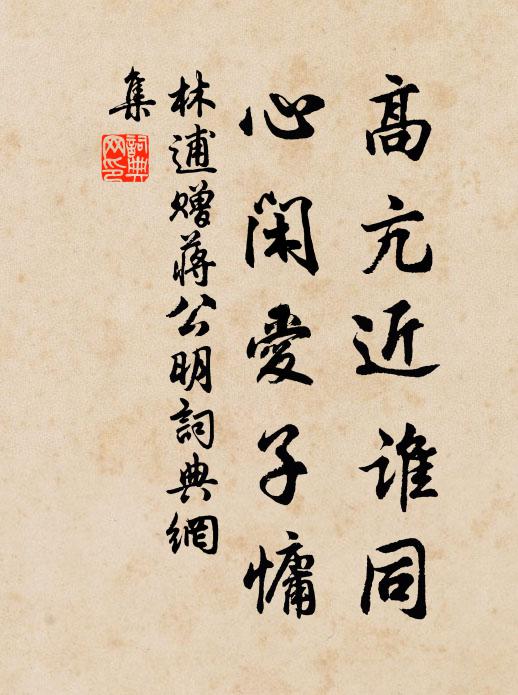 高亢近谁同
心闲爱子慵
林逋赠蒋公明詞典網
集
詞典
网印